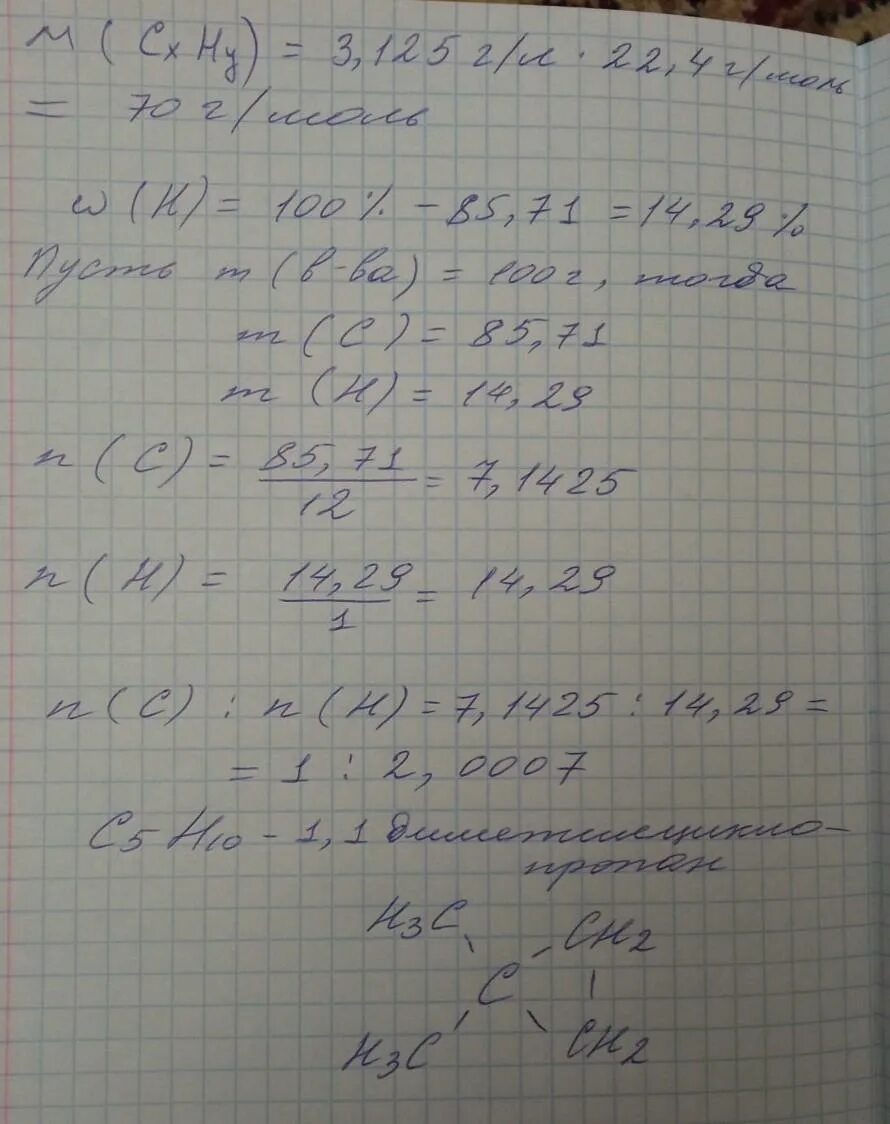 M (CxHy) = 3,125 г/л · 22,4 г/моль
= 70 г/моль
w (H) = 100 % - 85,71 = 14,29 %
Пусть m (в-ва) = 100 г, тогда
m (C) = 85,71
m (H) = 14,29
n (C) = 85,71/12 = 7,1425
n (H) = 14,29/1 = 14,29
n (C) : n (H) = 7,1425 : 14,29 =
= 1 : 2,0007
C5H10 - 1,1 диметилцикло-
пропан
H3C CH2
C
H3C CH2